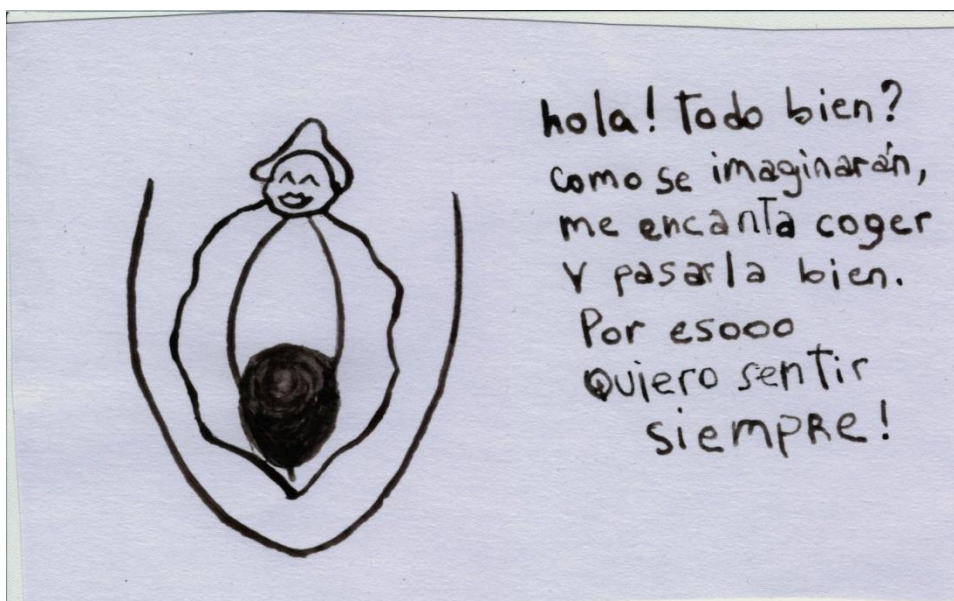 hola! Todo bien?
como se imaginarán,
me encanta coger
y pasarla bien.
Por esooo
Quiero sentir
siempre!